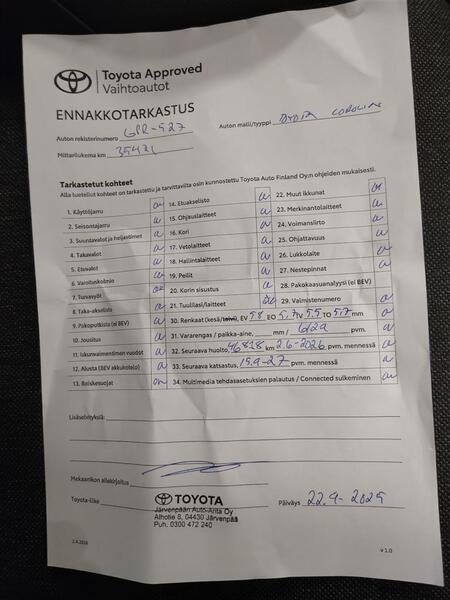 Toyota Approved
Vaihtoautot
ENNAKKOTARKASTUS
Auton rekisterinumero GPR-527
Auton malli/tyyppi TOYOTA COROLLA
Mittarilukema km
Tarkastetut kohteet
Alla luetellut kohteet on tarkastettu ja tarvittavilta osin kunnostettu Toyota Auto Finland Oy:n ohjeiden mukaisesti.
1. Käyttöjarru
2. Seisontajarru
3. Suuntavalot ja heijastimet
4. Takavalot
5. Etuvalot
6. Varoituskolmio
7. Turvavyöt
8. Taka-akselisto
9. Pakoputkisto (ei BEV)
10. Jousitus
11. Iskunvaimentimien vuodot
12. Alusta (BEV akkukotelo)
13. Roiskesuojat
14. Etuakselisto
15. Ohjauslaitteet
16. Kori
17. Vetolaitteet
18. Hallintalaitteet
19. Peilit
20. Korin sisustus
21. Tuulilasi/laitteet
22. Muut ikkunat
23. Merkinantolaitteet
24. Voimansiirto
25. Ohjattavuus
26. Lukkolaite
27. Nestepinnat
28. Pakokaasuanalyysi (ei BEV)
29. Valmistenumero
30. Renkaat (kesä/talvi), EV 5.8 EO 5.7 TV 5.5 TO 5.7 mm
31. Vararengas / paikka-aine, mm / 6/29 pvm.
32. Seuraava huolto, 46838 km 2.6-2026 pvm. mennessä
33. Seuraava katsastus, 15.9-27 pvm. mennessä
34. Multimedia tehdasasetuksien palautus / Connected sulkeminen
Lisäselvityksiä:
Mekaanikon allekirjoitus
Toyota-liike
TOYOTA
Järvenpään Auto-Arita Oy
Alhotie 8, 04430 Järvenpää
Puh. 0300 472 240
Päiväys 22.9-2025
v 1.0